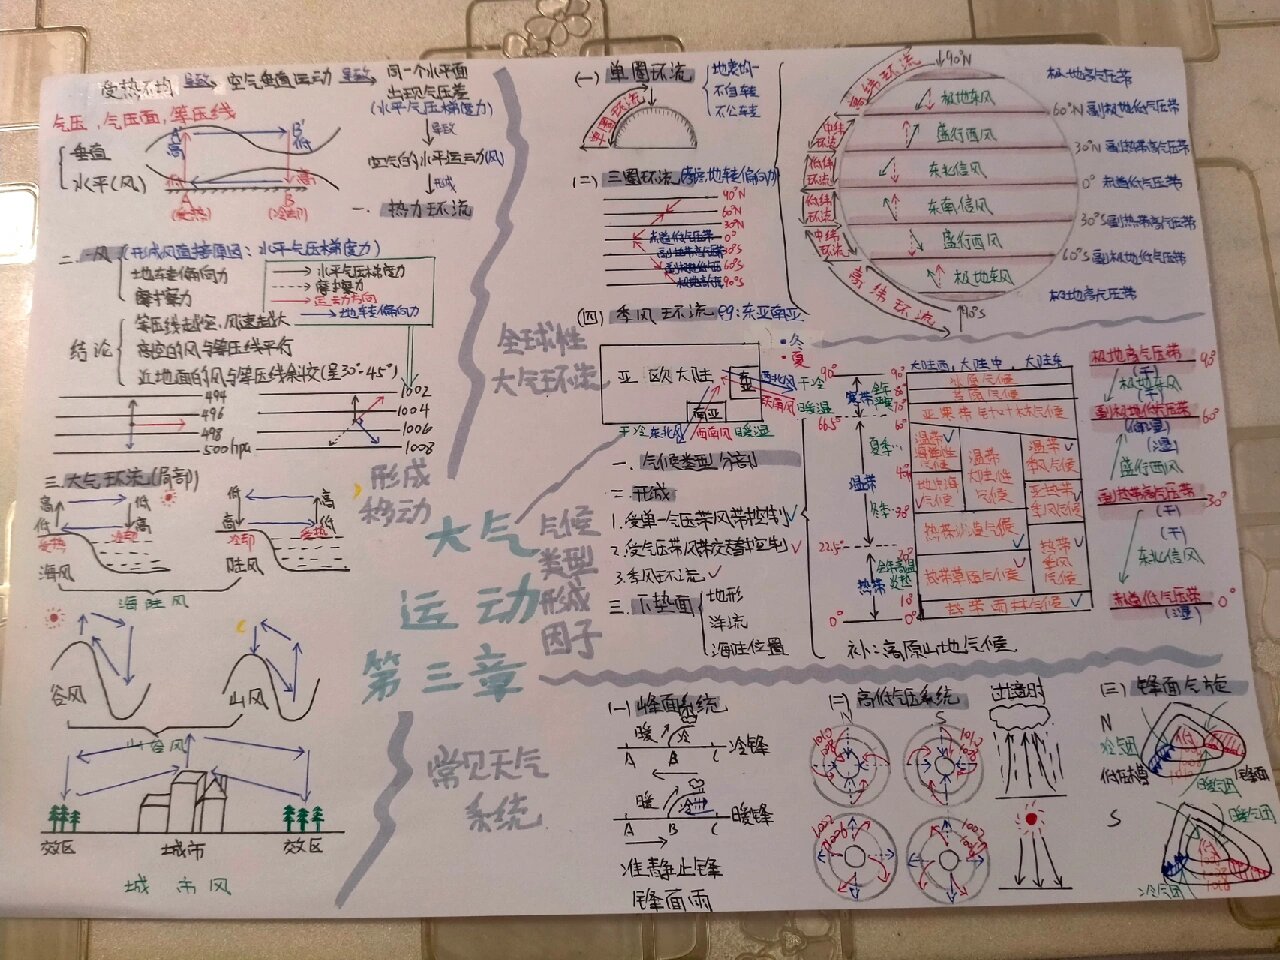 受热不均 导致 空气垂直运动 导致 同一个水平面
出现气压差
(水平气压梯度力)
导致
空气的水平运动(风)
形成
一、热力环流
气压,气压面,等压线
垂直
水平(风)
A' 高
B' 低
低
高
A
B
(受热)
(冷却)
二、风(形成风直接原因:水平气压梯度力)
地转偏向力
摩擦力
水平气压梯度力
摩擦力
运动方向
地转偏向力
结论
等压线越密,风速越大
高空的风与等压线平行
近地面的风与等压线斜交(呈30°-45°)
494
496
498
500hpa
1002
1004
1006
1008
三、大气环流(局部)
高 低
低 高
受热 冷却
海风
低 高
高 低
冷却 受热
陆风
海陆风
谷风
山风
山谷风
效区
城市
效区
城市风
形成
移动
全球性
大气环流
大气
运动
第三章
气候
类型
形成
因子
常见天气
系统
(一)单圈环流
地表均一
不自转
不公转
单圈环流
(二)三圈环流(考虑地转偏向力)
90°N
60°N
30°N
赤道低气压带 0°
副热带高气压带 30°S
副极地低气压 60°S
极地高气压 90°S
90°N
极地高气压带
60°N 副极地低气压带
30°N 副热带高气压带
0° 赤道低气压带
30°S 副热带高气压带
60°S 副极地低气压带
极地高气压带
90°S
极地东风
盛行西风
东北信风
东南信风
盛行西风
极地东风
高纬环流
中纬环流
低纬环流
低纬环流
中纬环流
高纬环流
(四)季风环流 eg:东亚南亚
冬
夏
亚欧大陆
东亚
南亚
西北风 干冷
东南风 暖湿
干冷东北风 西南风 暖湿
一、气候类型分部
二、形成
1.受单一气压带风带控制
2.受气压带风带交替控制
3.季风环流
三、下垫面
地形
洋流
海陆位置
90°
66.5°
22.5°
0°
寒带
温带
热带
夏季
冬季
大陆西,大陆中,大陆东
冰原气候
苔原气候
亚寒带针叶林气候
温带海洋性气候
温带大陆性气候
温带季风气候
地中海气候
亚热带季风气候
热带沙漠气候
热带季风气候
热带草原气候
热带雨林气候
补:高原山地气候
极地高气压带 90°
(干)
极地东风
(干)
副极地低气压带 60°
(湿)
盛行西风
副热带高气压带 30°
(干)
(干)
东北信风
赤道低气压带 0°
(湿)
(一)峰面系统
暖
冷
A B C 冷锋
暖
冷
A B C 暖锋
准静止锋
锋面雨
(二)高低气压系统
N
S
过境时
(三)锋面气旋
N
冷气团
低压槽
锋面
暖气团
S
暖气团
冷气团